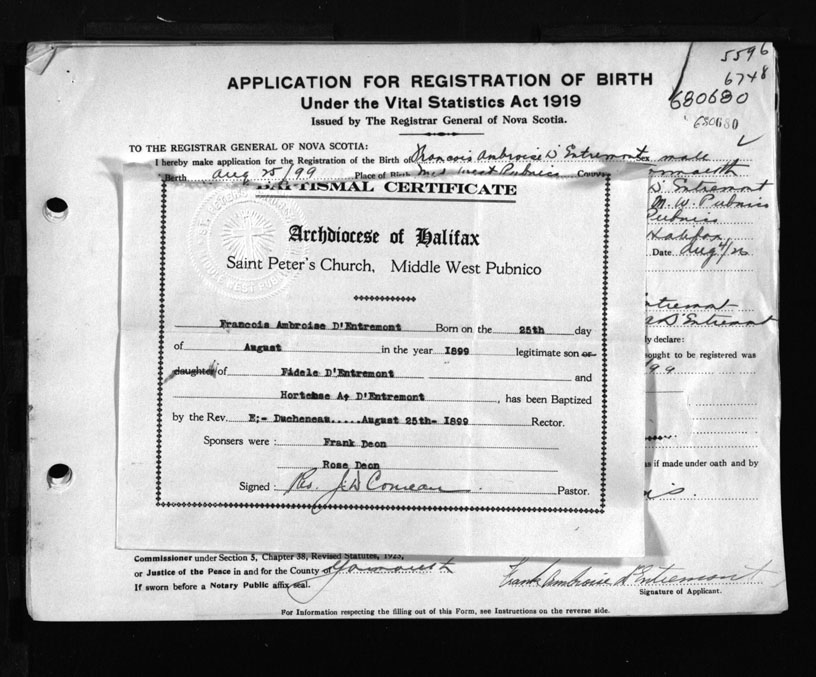 5596
6748
680680
680680
APPLICATION FOR REGISTRATION OF BIRTH
Under the Vital Statistics Act 1919
Issued by The Registrar General of Nova Scotia.
TO THE REGISTRAR GENERAL OF NOVA SCOTIA:
I hereby make application for the Registration of the Birth of Francois Ambroise D'Entremont Sex male
Birth Aug 25/99 Place of Birth Mid West Pubnico County
D'Entremont
M. W. Pubnico
Pubnico
Halifax
Date Aug 4/26
BAPTISMAL CERTIFICATE
Archdiocese of Halifax
Saint Peter's Church, Middle West Pubnico
Francois Ambroise D'Entremont Born on the 25th day
of August in the year 1899 legitimate son or
daughter of Fidele D'Entremont and
Hortense A. D'Entremont, has been Baptized
by the Rev. E;- Ducheneau.....August 25th- 1899 Rector.
Sponsers were : Frank Deon
Rose Deon
Signed : Rev. J. W. Comeau Pastor.
Entremont
D'Entremont
ly declare:
sought to be registered was
99
as if made under oath and by
Commissioner under Section 5, Chapter 38, Revised Statutes, 1923,
or Justice of the Peace in and for the County of Yarmouth
If sworn before a Notary Public affix seal.
Frank Ambroise D'Entremont
Signature of Applicant.
For Information respecting the filling out of this Form, see Instructions on the reverse side.